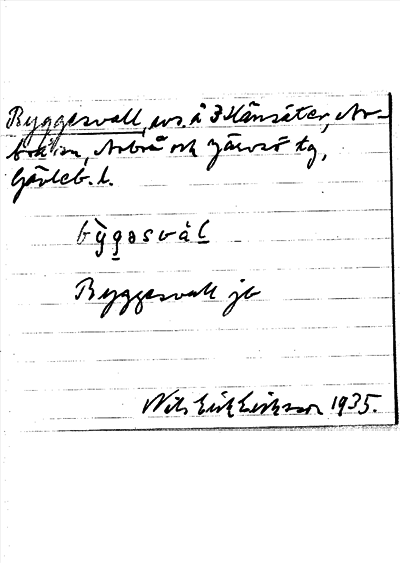 Byggesvall, avs. å 3 Hänsäter, Ar-
brå sn, Arbrå och Järvsö tg,
Gävleb. l.
bỳgəsvàl
Byggesvall jb
Nils Erik Eriksson 1935.